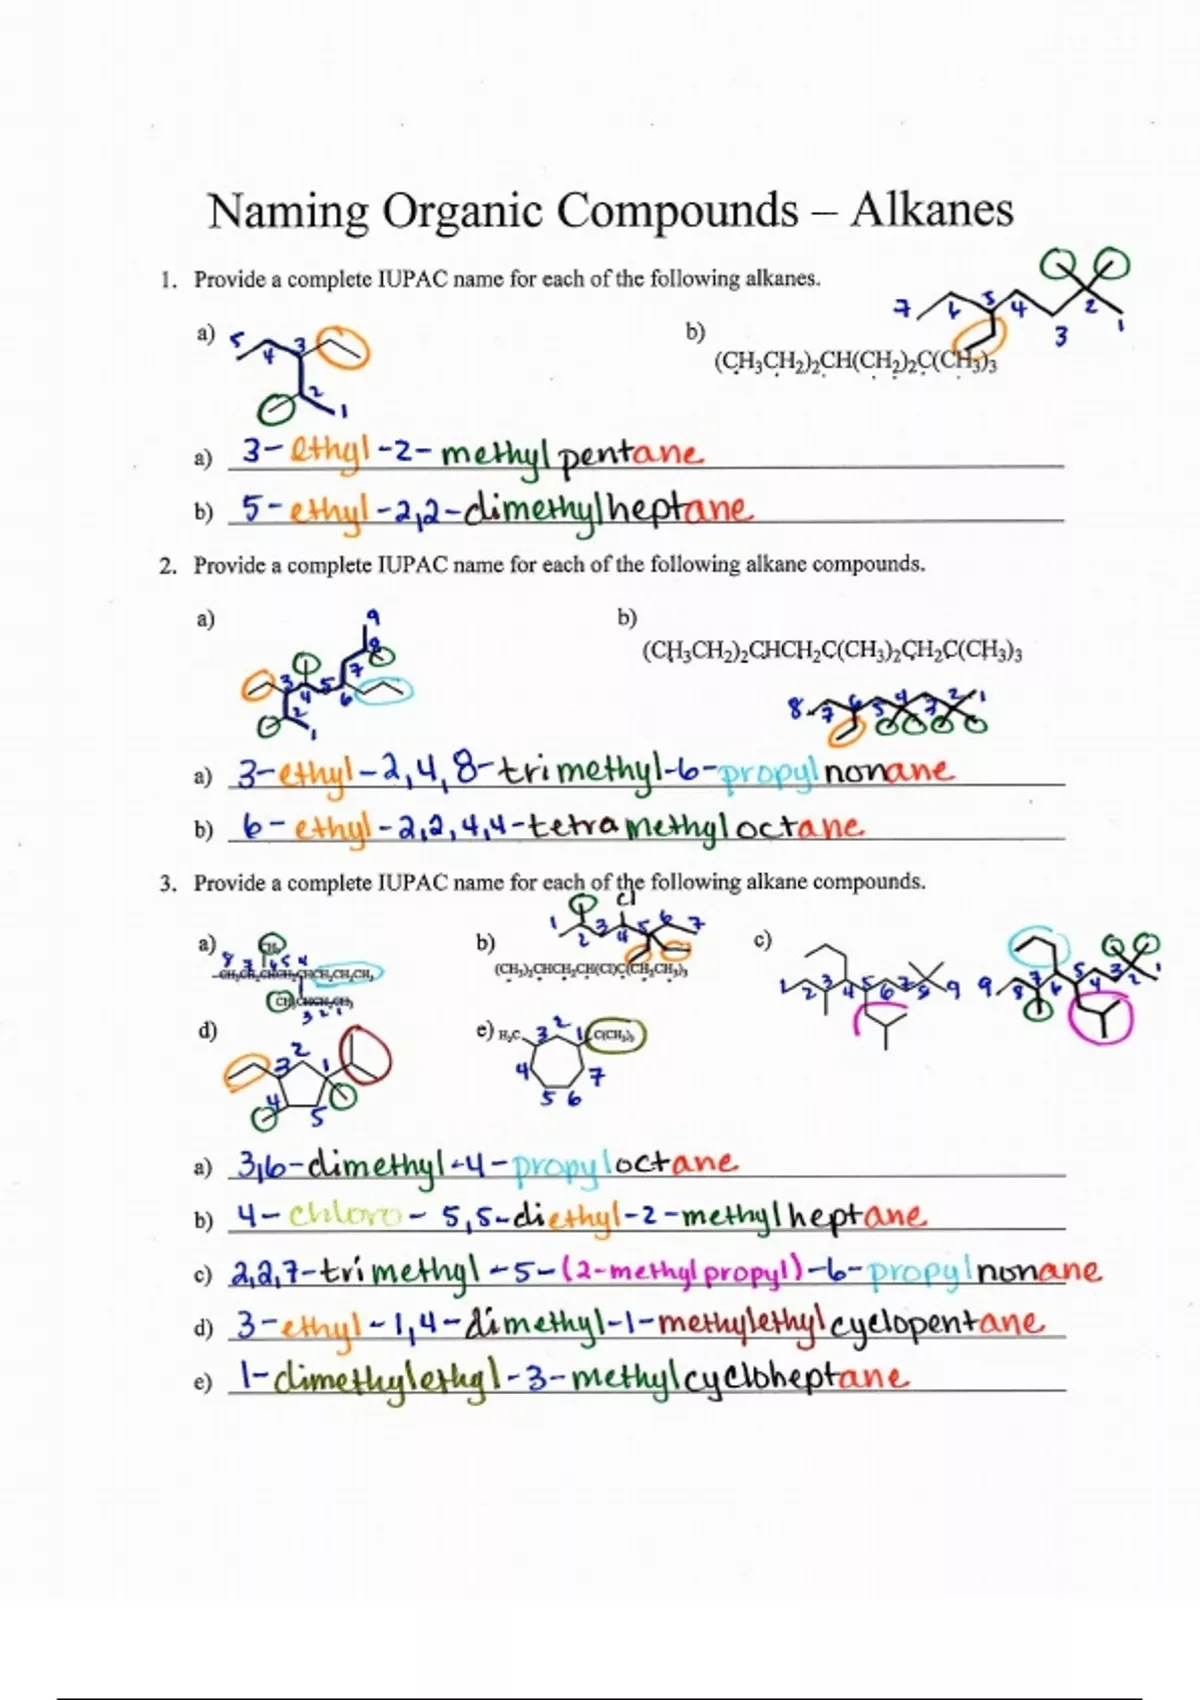 Naming Organic Compounds – Alkanes
1. Provide a complete IUPAC name for each of the following alkanes.
a) 5 4 3 2 1
b) 7 6 5 4 3 2 1
(CH₃CH₂)₂CH(CH₂)₂C(CH₃)₃
a) 3-ethyl-2-methylpentane
b) 5-ethyl-2,2-dimethylheptane
2. Provide a complete IUPAC name for each of the following alkane compounds.
a) 9 8 7 3 4 5 6 2 1
b)
(CH₃CH₂)₂CHCH₂C(CH₃)₂CH₂C(CH₃)₃
8 7 6 5 4 7 2 1
a) 3-ethyl-2,4,8-trimethyl-6-propylnonane
b) 6-ethyl-2,2,4,4-tetramethyloctane
3. Provide a complete IUPAC name for each of the following alkane compounds.
a) 8 7 6 5 4
3 2 1
b) Cl 1 2 3 4 5 6 7
(CH₃)₂CHCH₂CH(Cl)C(CH₂CH₃)₃
c) 1 2 3 4 5 6 7 8 9 9 8 7 6 5 4 3 2 1
d) 2 3 1 4 5
e) H₃C 3 2 1 C(CH₃)₃
4 7
5 6
a) 3,6-dimethyl-4-propyloctane
b) 4-chloro-5,5-diethyl-2-methylheptane
c) 2,2,7-trimethyl-5-(2-methylpropyl)-6-propylnonane
d) 3-ethyl-1,4-dimethyl-1-methylethylcyclopentane
e) 1-dimethylethyl-3-methylcycloheptane